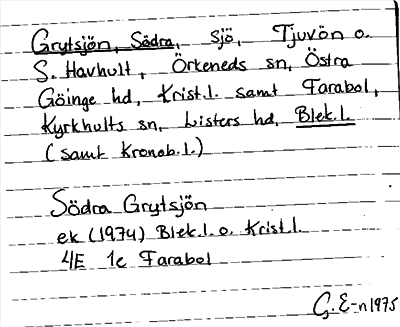 Grytsjön, Södra, sjö, Tjuvön o.
S. Havhult, Örkeneds sn, Östra
Göinge hd, Krist.l. samt Farabol,
Kyrkhults sn, Listers hd, Blek.l.
(samt Kronob.l.)
Södra Grytsjön
ek (1974) Blek.l. o. Krist.l.
4E 1c Farabol
G. E-n 1975